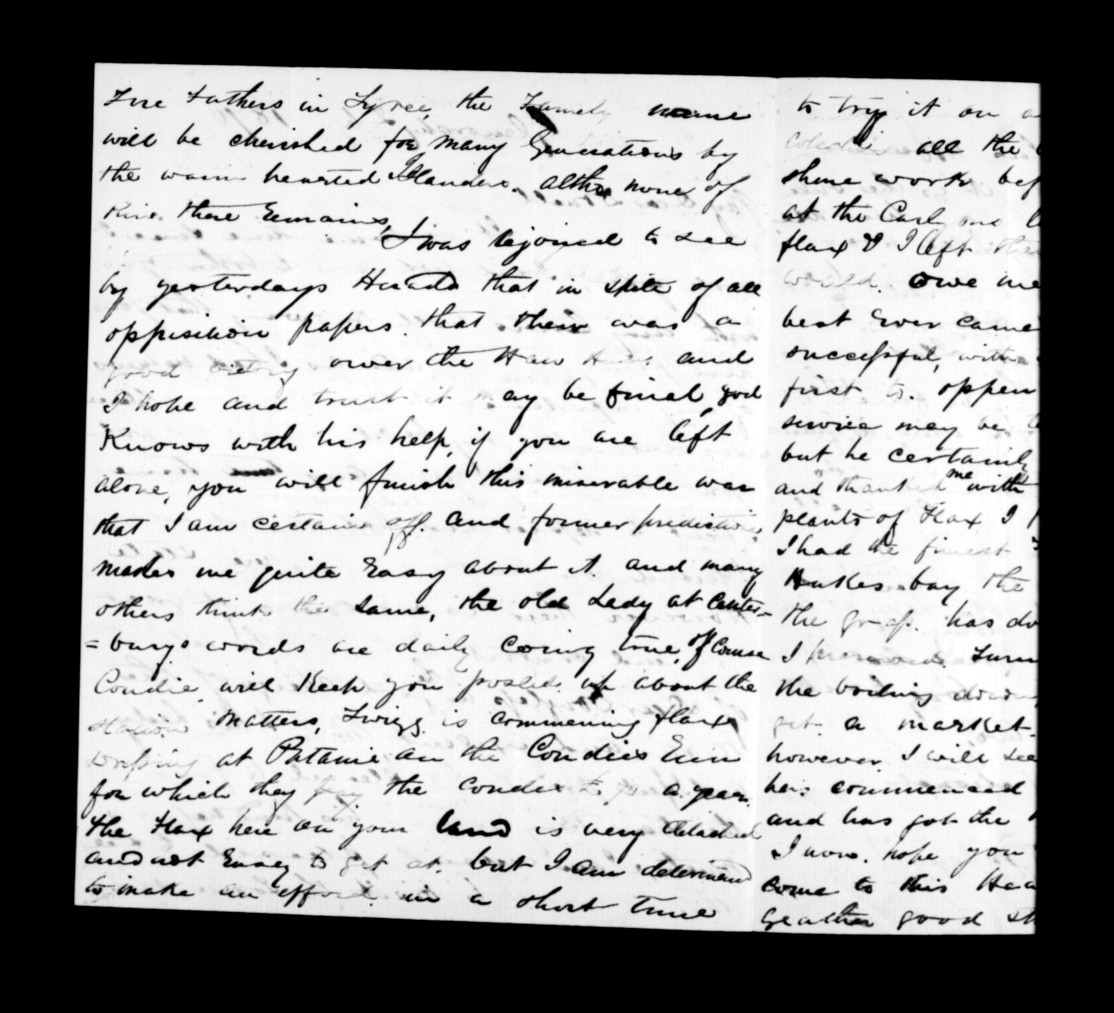 Fore Fathers in Tyree, the Family name
will be cherished for many Generations by
the warm hearted Islanders. altho none of
Kin. there Remains,
I was rejoiced to see
by yesterdays Herald that in spite of all
opposition papers. that their was a
good victory over the Haw Haws and
I hope and trust it may be final, god
Knows with his help, if you are left
alone, you will finish this miserable war
that I am certain off. and former predictions,
makes me quite Easy about it. and many
others think the same, the old Lady at Canter=
=burys words are daily coming true, off Course
Condie will Keep you posted up about the
Station Matters, Twigg is commening flax
at Patanie on the Condies Run
for which they pay the Condies a year.
the flax here on your land is very detached
and not Easey to get at. but I am determined
to make an effort. in a short time
to try it on a
all the
shine work bef
at the Carly
flax & I left the
would. owe me
best Ever came
successful, with
first to. oppen
service may be
but he certainly
and thanked me with
plants of flax I
I had the finest
Hukes bay the
the grass. has do
I Turn
the boiling down
get. a market
however I will see
has commenced
and has got the
I now. hope you
come to this Hea
Geather good st